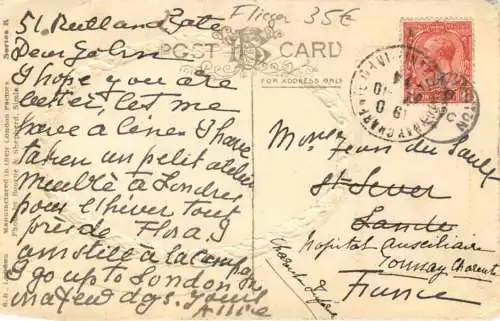 51 Rutland Gate
Flieger 35€
POST CARD
FOR ADDRESS ONLY
Dear John
I hope you are
better, let me
have a line. I have
taken un petit atelier
meublé à Londres
pour l'hiver tout
près de Flora. I
am still à la campagne
I go up to London
in a few dys. Yours
Alice
Monsr Jean du Sault
St Sever
Landes
Hopital Auxiliaire
Tonnay Charente
Charente Infre
France
Manufactured in their London Factory. Series R